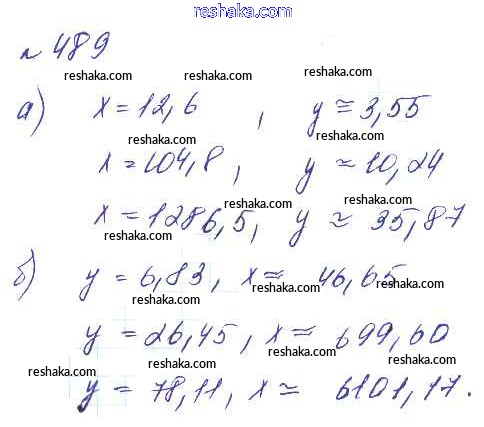 reshaka.com
№ 489
reshaka.com reshaka.com
а) x = 12,6 , y ≈ 3,55
reshaka.com reshaka.com
x = 104,8 , y ≈ 10,24
reshaka.com reshaka.com
x = 1286,5 , y ≈ 35,87
reshaka.com reshaka.com
б) y = 6,83 , x ≈ 46,65
reshaka.com reshaka.com
y = 26,45 , x ≈ 699,60
reshaka.com reshaka.com
y = 78,11 , x ≈ 6101,17.
reshaka.com reshaka.com